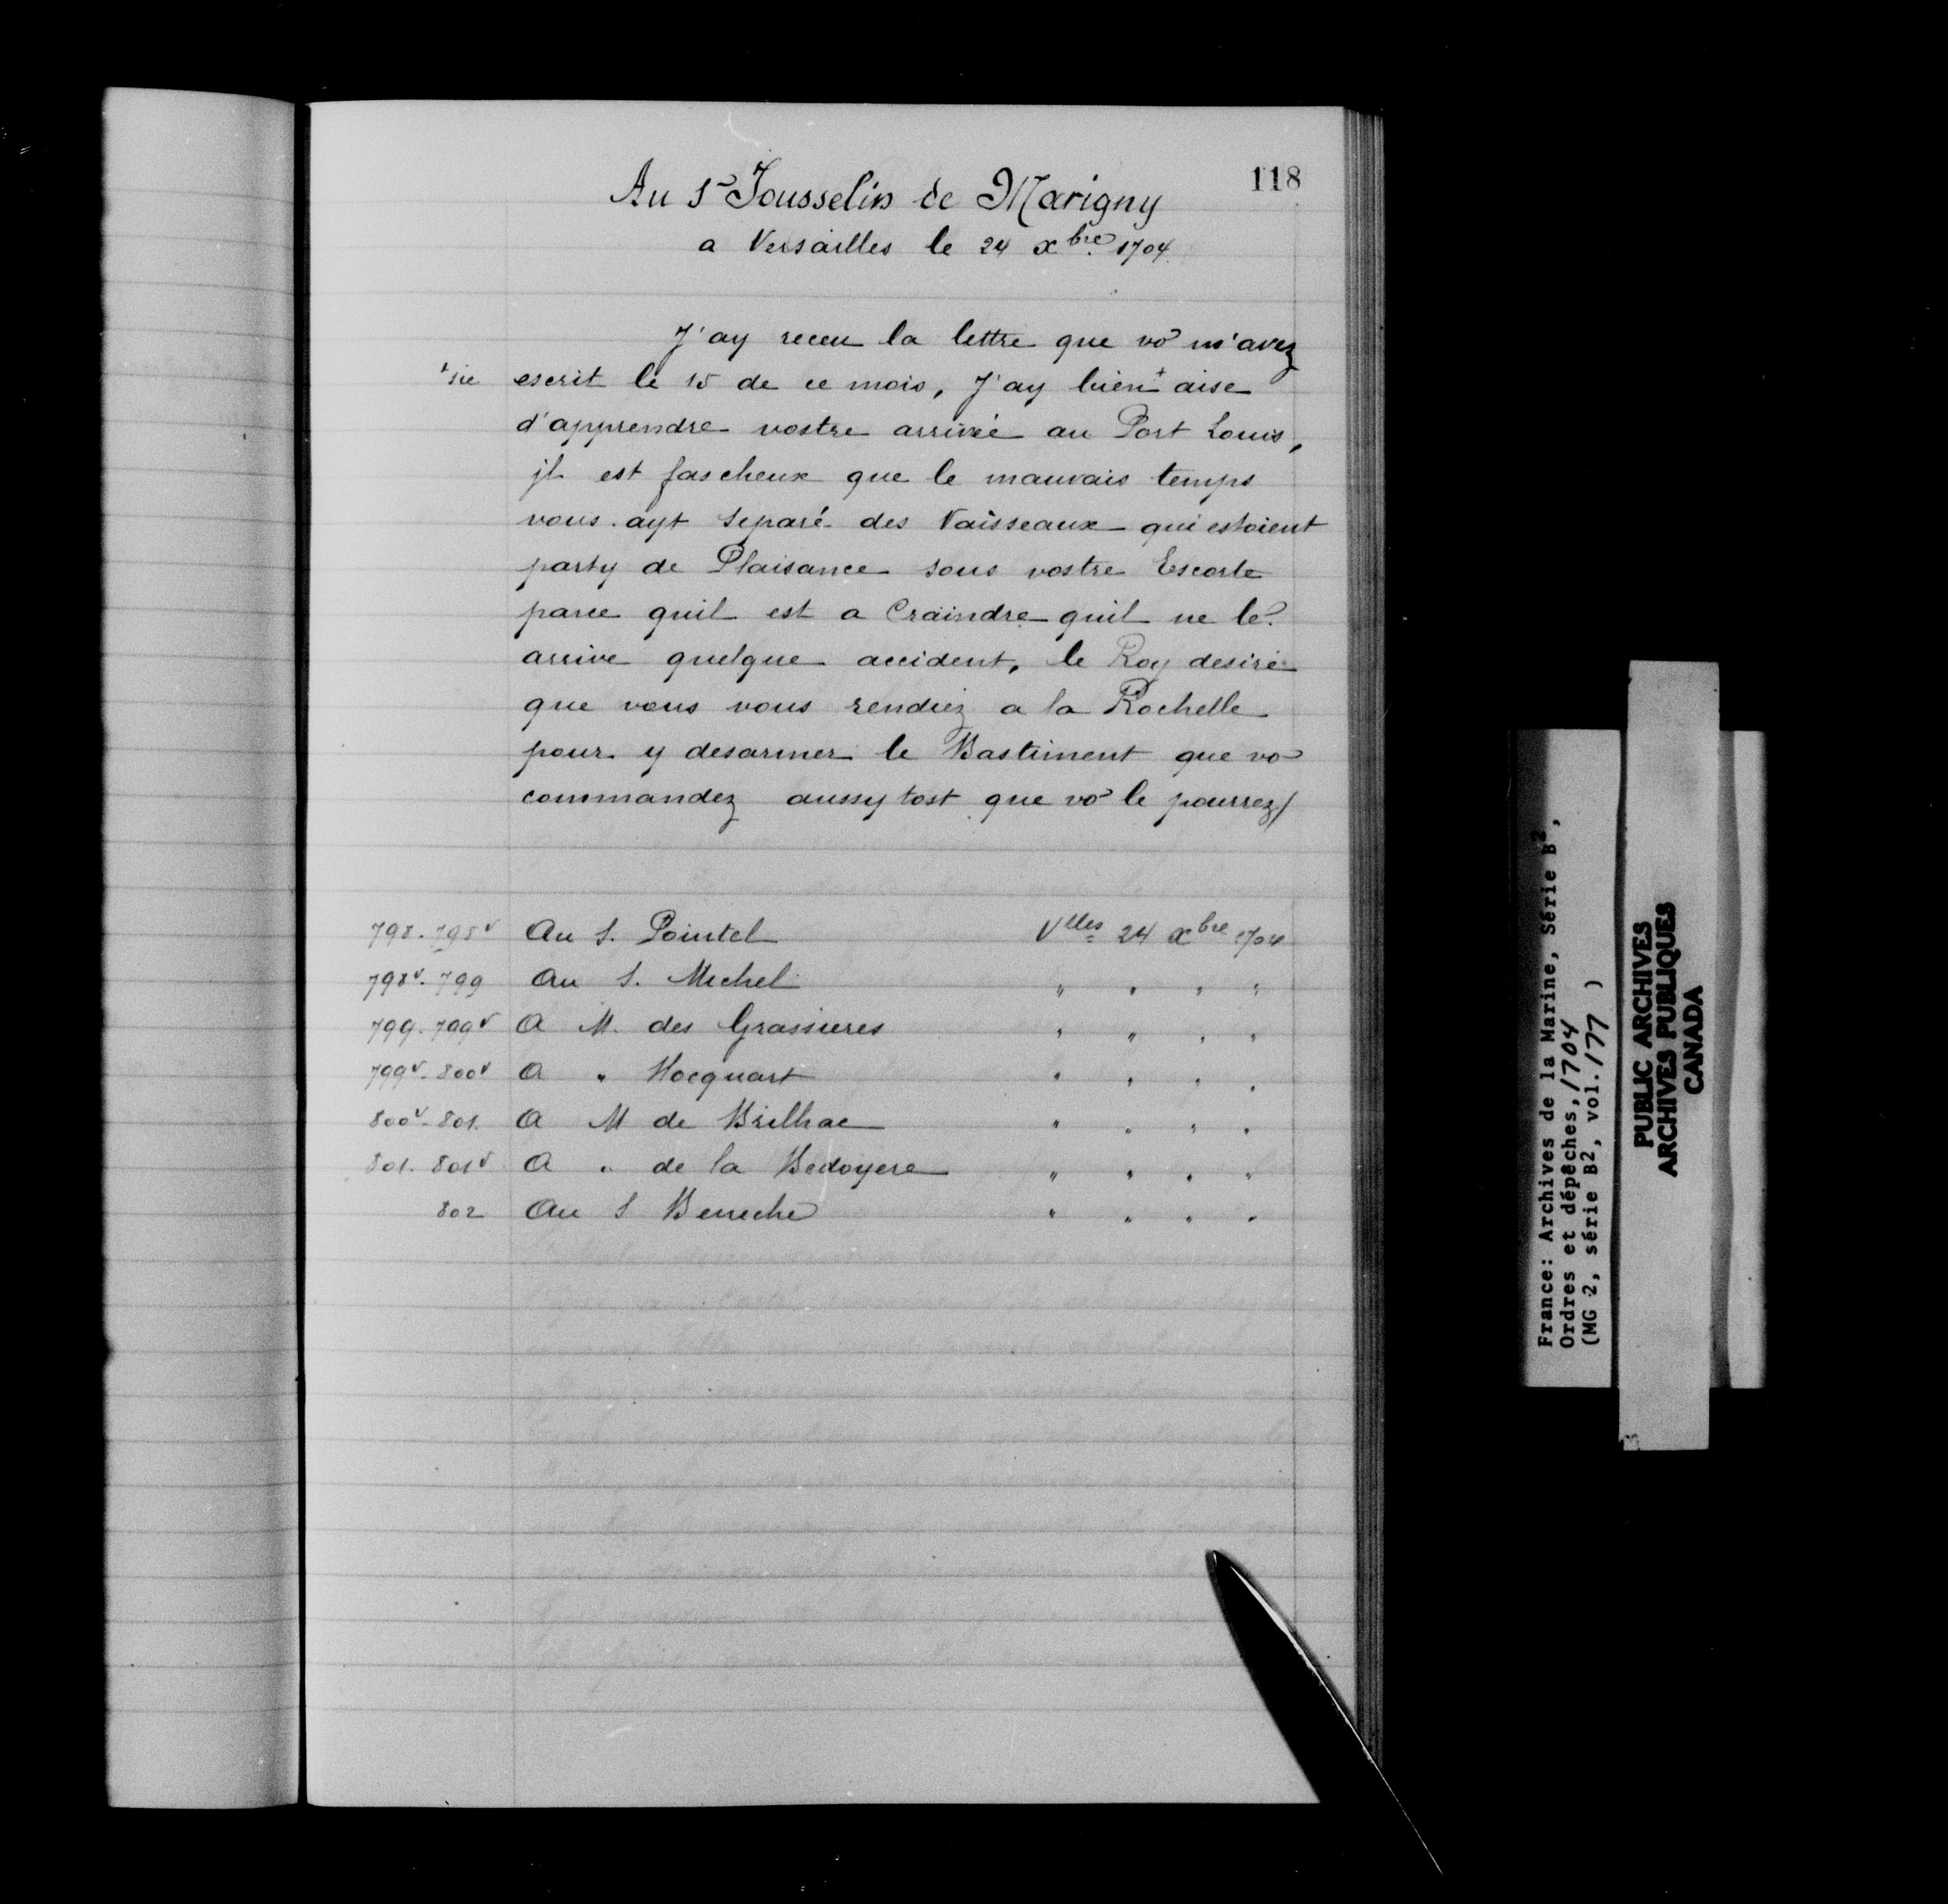 118
Au Sr Jousselin de Marigny
a Versailles le 24 xbre 1704.
J'ay receu la lettre que vo m'avez
+sic escrit le 15 de ce mois, J'ay bien+ aise
d'apprendre vostre arrivée au Port Louis,
jl est fascheux que le mauvais temps
vous ayt separé des Vaisseaux qui estoient
party de Plaisance sous vostre Escorte
parce quil est a Craindre quil ne le?
arrive quelque accident, le Roy desire
que vous vous rendiez a la Rochelle
pour y desarmer le Bastiment que vo
commandez aussy tost que vo le pourrez/
798. 798v Au S. Pointel Vlles 24 xbre 1704
798v. 799 Au S. Michel " " " "
799. 799v A M. des Grassieres " " " "
799v. 800v A " Hocquart " " " "
800v. 801. A M de Brilhac " " " "
801. 801v A " de la Bedoyere " " " "
802 Au S Beneche " " " "
France: Archives de la Marine, Série B2,
Ordres et dépêches, 1704
(MG 2, série B2, vol. 177 )
PUBLIC ARCHIVES
ARCHIVES PUBLIQUES
CANADA